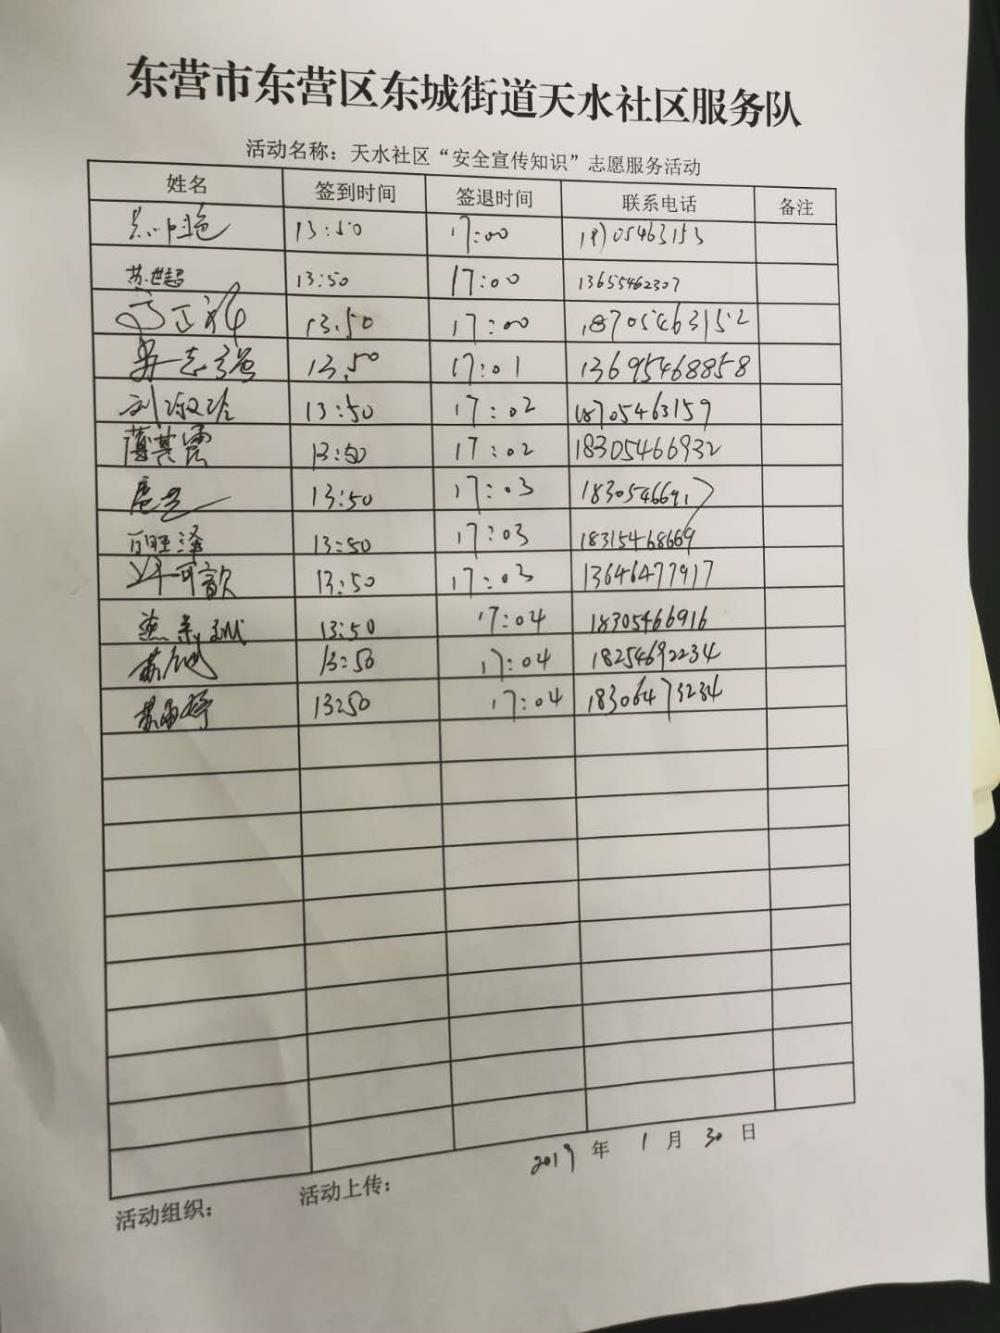 东营市东营区东城街道天水社区服务队
活动名称：天水社区“安全宣传知识”志愿服务活动
姓名 签到时间 签退时间 联系电话 备注
13:50 17:00 18705463153
苏世超 13:50 17:00 13655462307
13.50 17:00 18705463152
13.50 17:01 13695468858
刘淑玲 13:50 17:02 18705463159
薄其震 13:50 17:02 18305466932
13:50 17:03 18305466917
13:50 17:03 18315468669
许可歆 13:50 17:03 13646477917
13:50 17:04 18305466916
13:50 17:04 18254692234
苏雨婷 13:50 17:04 18306473234
2019 年 1 月 30 日
活动组织： 活动上传：